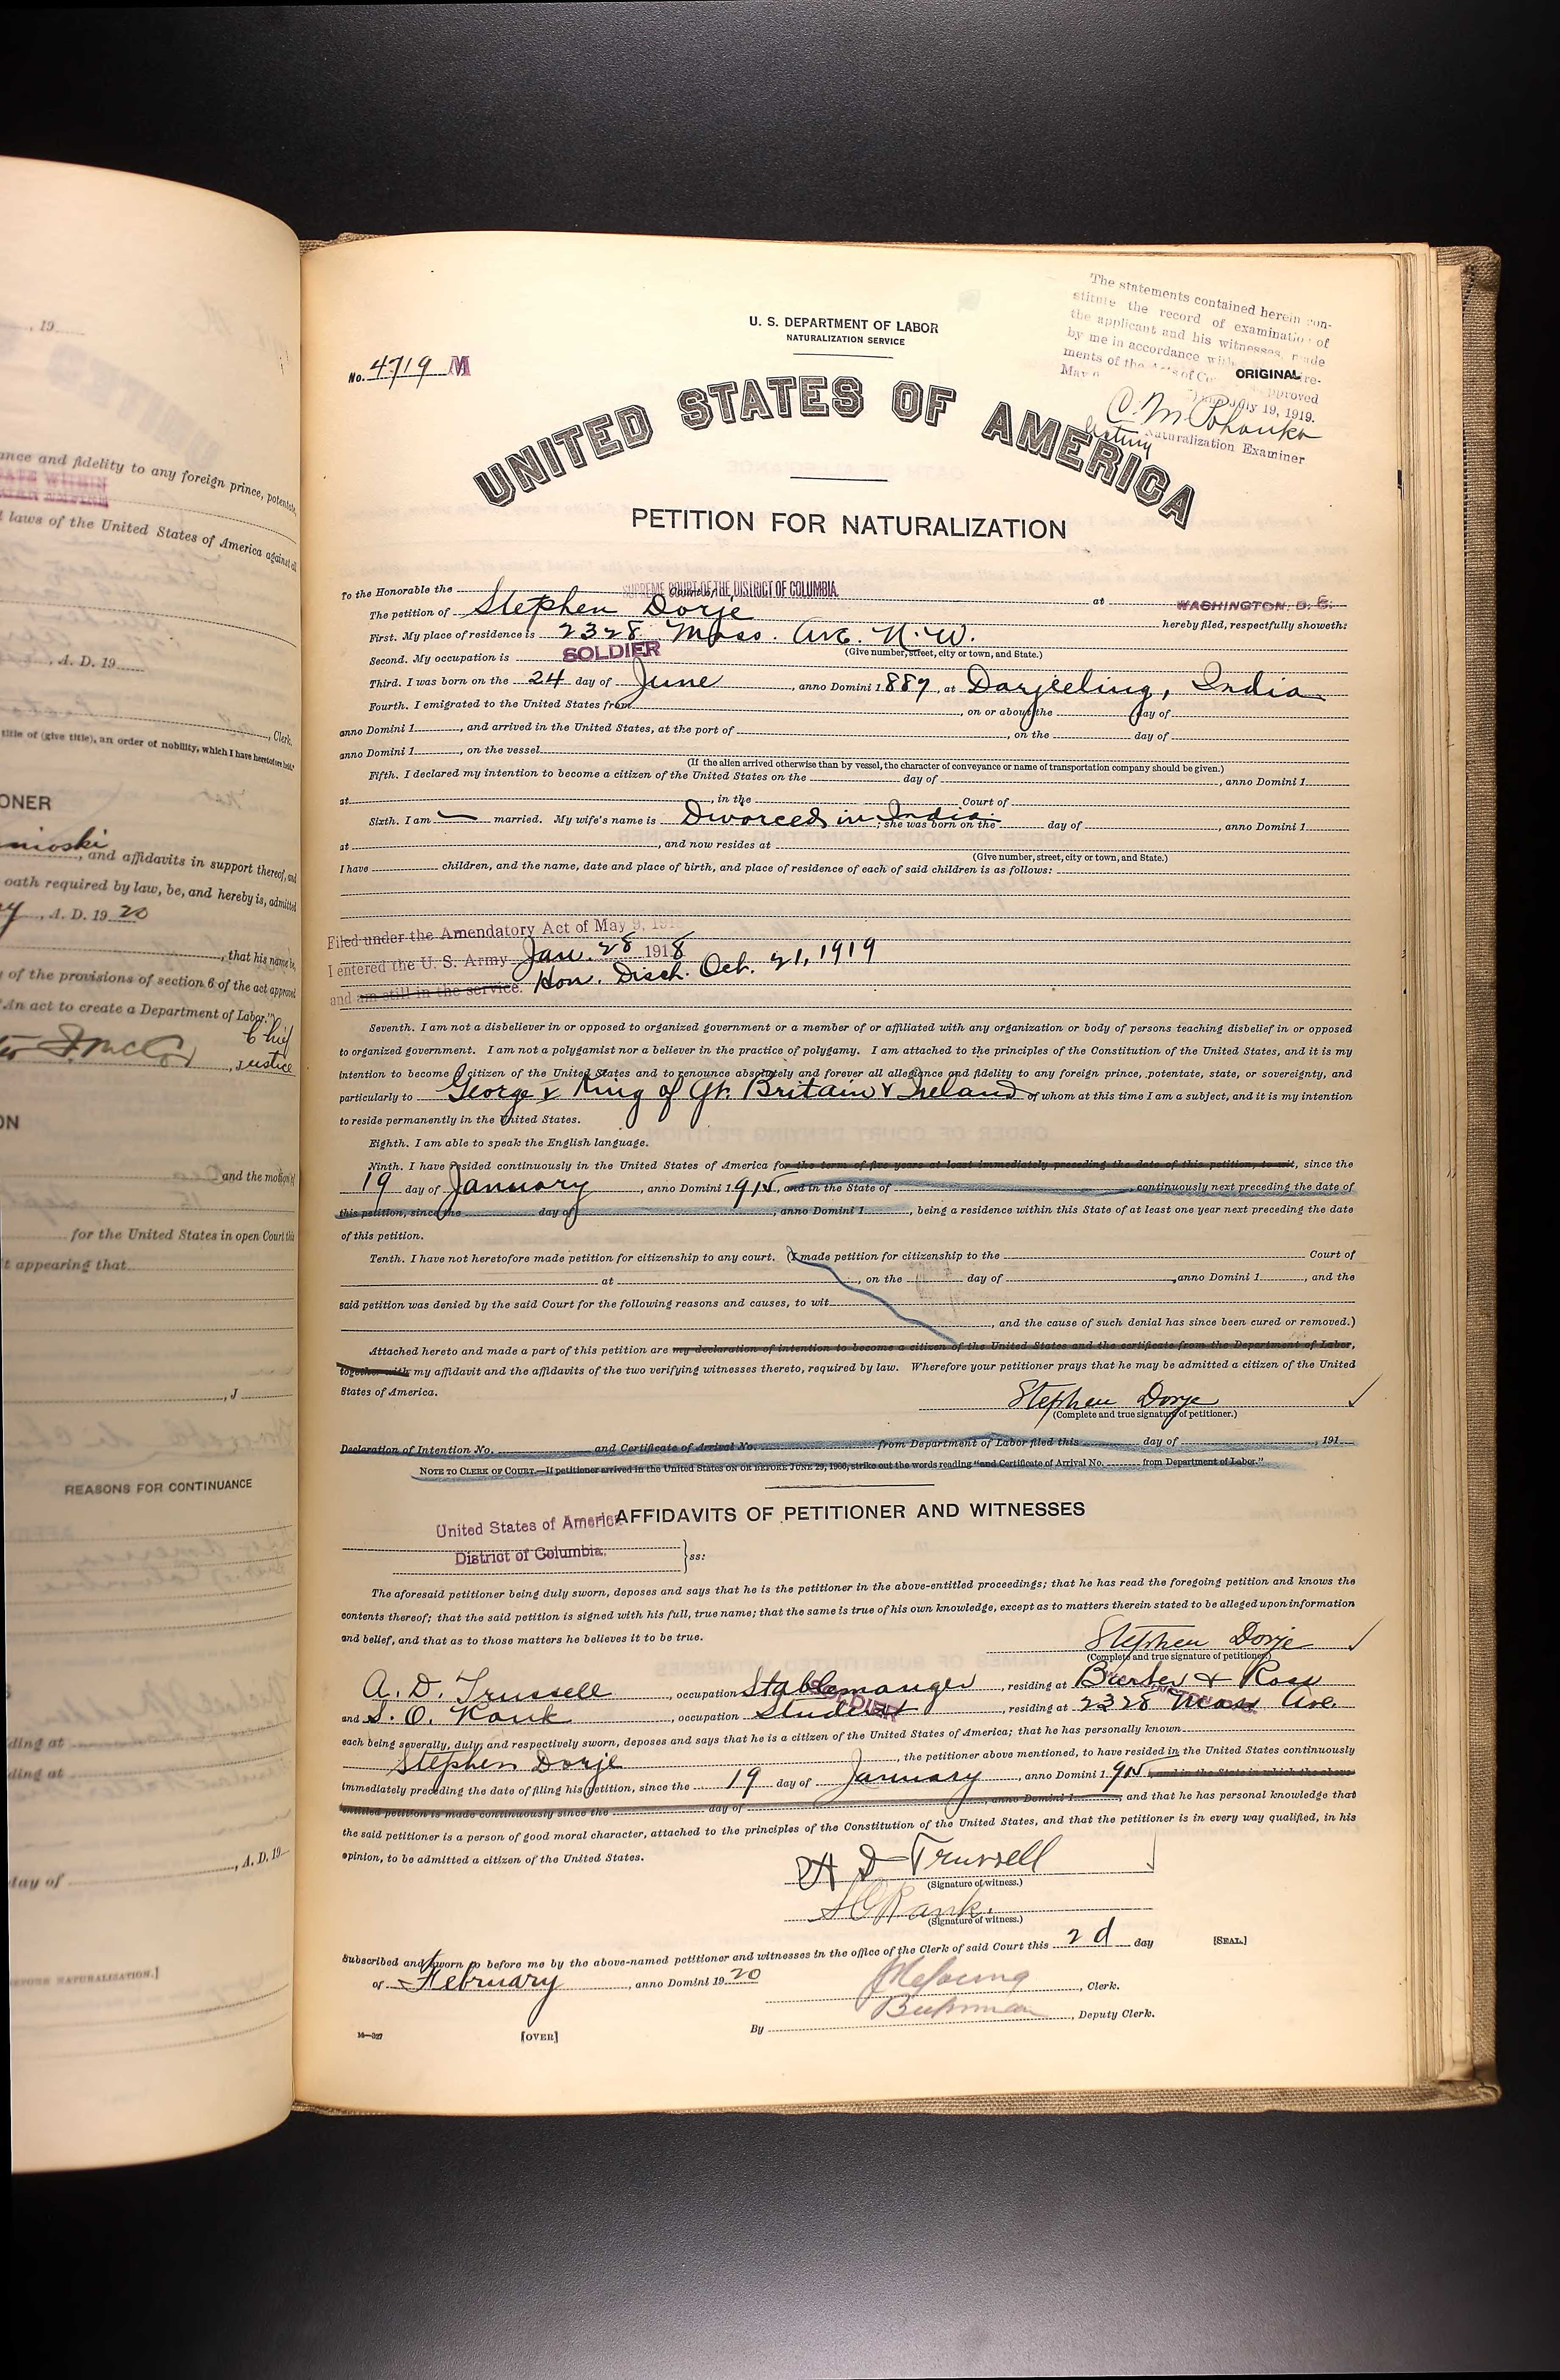 , 19
ance and fidelity to any foreign prince, potentate,
laws of the United States of America against all
, A. D. 19
, Clerk.
title of (give title), an order of nobility, which I have heretofore held."
ONER
, and affidavits in support thereof, and
oath required by law, be, and hereby is, admitted
, A. D. 19 20
, that his name be,
of the provisions of section 6 of the act approved
"An act to create a Department of Labor."
Chief
Justice
ON
and the motion of
for the United States in open Court this
t appearing that
, J
REASONS FOR CONTINUANCE
ding at
ding at
, A. D. 19
day of
U. S. DEPARTMENT OF LABOR
NATURALIZATION SERVICE
No. 4719 M
The statements contained herein con-
stitute the record of examination of
the applicant and his witnesses, made
by me in accordance with re-
ments of the Acts of approved
July 19, 1919.
ORIGINAL
Naturalization Examiner
UNITED STATES OF AMERICA
PETITION FOR NATURALIZATION
To the Honorable the SUPREME COURT OF THE DISTRICT OF COLUMBIA at WASHINGTON, D. C.
The petition of Stephen Dorje hereby filed, respectfully showeth:
First. My place of residence is 2328 Mass. Ave. N.W.
(Give number, street, city or town, and State.)
Second. My occupation is SOLDIER
Third. I was born on the 24 day of June, anno Domini 1887, at Darjeeling, India
Fourth. I emigrated to the United States from , on or about the day of
anno Domini 1 , and arrived in the United States, at the port of , on the day of
anno Domini 1 , on the vessel
(If the alien arrived otherwise than by vessel, the character of conveyance or name of transportation company should be given.)
Fifth. I declared my intention to become a citizen of the United States on the day of , anno Domini 1
at , in the Court of
Sixth. I am — married. My wife's name is Divorced in India; she was born on the day of , anno Domini 1
at , and now resides at
(Give number, street, city or town, and State.)
I have children, and the name, date and place of birth, and place of residence of each of said children is as follows:
Filed under the Amendatory Act of May 9, 191
I entered the U. S. Army Jan. 28 1918
and am still in the service. Hon. Disch. Oct. 21, 1919
Seventh. I am not a disbeliever in or opposed to organized government or a member of or affiliated with any organization or body of persons teaching disbelief in or opposed
to organized government. I am not a polygamist nor a believer in the practice of polygamy. I am attached to the principles of the Constitution of the United States, and it is my
intention to become a citizen of the United States and to renounce absolutely and forever all allegiance and fidelity to any foreign prince, potentate, state, or sovereignty, and
particularly to George V King of Gt. Britain & Ireland of whom at this time I am a subject, and it is my intention
to reside permanently in the United States.
Eighth. I am able to speak the English language.
Ninth. I have resided continuously in the United States of America for the term of five years at least immediately preceding the date of this petition, to wit, since the
19 day of January, anno Domini 1915, and in the State of , continuously next preceding the date of
this petition, since the day of , anno Domini 1 , being a residence within this State of at least one year next preceding the date
of this petition.
Tenth. I have not heretofore made petition for citizenship to any court. (I made petition for citizenship to the Court of
at , on the day of , anno Domini 1 , and the
said petition was denied by the said Court for the following reasons and causes, to wit
, and the cause of such denial has since been cured or removed.)
Attached hereto and made a part of this petition are my declaration of intention to become a citizen of the United States and the certificate from the Department of Labor,
together with my affidavit and the affidavits of the two verifying witnesses thereto, required by law. Wherefore your petitioner prays that he may be admitted a citizen of the United
States of America.
Stephen Dorje
(Complete and true signature of petitioner.)
Declaration of Intention No. and Certificate of Arrival No. from Department of Labor filed this day of , 191
NOTE TO CLERK OF COURT.—If petitioner arrived in the United States ON OR BEFORE JUNE 29, 1906, strike out the words reading "and Certificate of Arrival No. from Department of Labor."
AFFIDAVITS OF PETITIONER AND WITNESSES
United States of America
District of Columbia. ss:
The aforesaid petitioner being duly sworn, deposes and says that he is the petitioner in the above-entitled proceedings; that he has read the foregoing petition and knows the
contents thereof; that the said petition is signed with his full, true name; that the same is true of his own knowledge, except as to matters therein stated to be alleged upon information
and belief, and that as to those matters he believes it to be true.
Stephen Dorje
(Complete and true signature of petitioner.)
A. D. Trussell, occupation Stablemanger, residing at & Ross
and S. O. Rank, occupation Student SOLDIER, residing at 2328 Mass Ave.
each being severally, duly, and respectively sworn, deposes and says that he is a citizen of the United States of America; that he has personally known
Stephen Dorje, the petitioner above mentioned, to have resided in the United States continuously
immediately preceding the date of filing his petition, since the 19 day of January, anno Domini 1915, and in the State in which the above-
entitled petition is made continuously since the day of , anno Domini 1 , and that he has personal knowledge that
the said petitioner is a person of good moral character, attached to the principles of the Constitution of the United States, and that the petitioner is in every way qualified, in his
opinion, to be admitted a citizen of the United States.
A D Trussell
(Signature of witness.)
S O Rank.
(Signature of witness.)
Subscribed and sworn to before me by the above-named petitioner and witnesses in the office of the Clerk of said Court this 2d day [SEAL.]
of February, anno Domini 19 20
, Clerk.
By , Deputy Clerk.
[OVER]